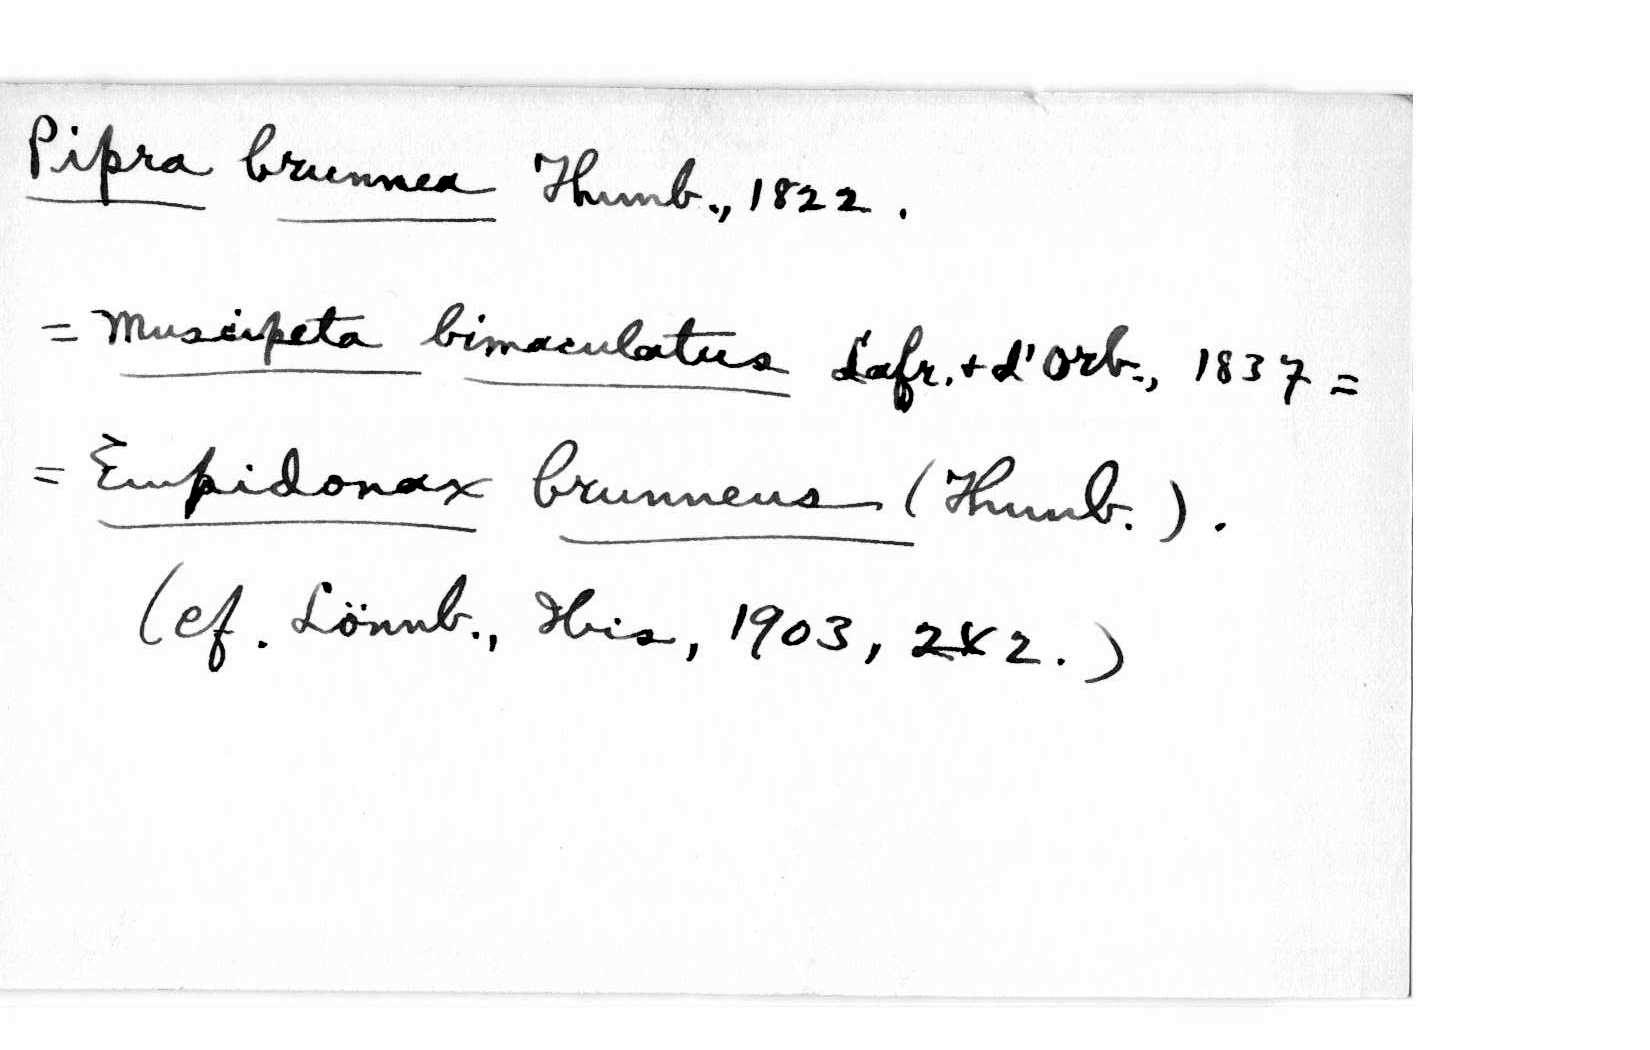 Pipra brunnea Thunb., 1822.
= Muscipeta bimaculatus Lafr. + d'Orb., 1837 =
= Empidonax brunneus (Thunb.).
(cf. Lönnb., Ibis, 1903, 242.)